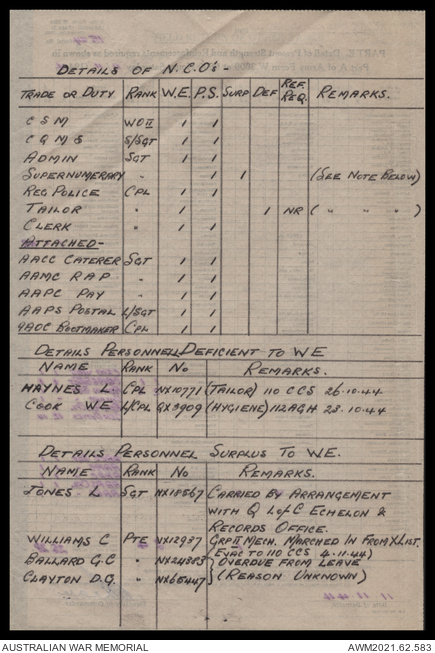 DETAILS OF N.C.O's -
TRADE OR DUTY RANK W.E. P.S. SURP DEF REF. REQ. REMARKS.
C S M WO II 1 1
C Q M S S/SGT 1 1
ADMIN SGT 1 1
SUPERNUMERARY " 1 1 (SEE NOTE BELOW)
REG POLICE CPL 1 1
TAILOR " 1 1 NR ( " " " )
CLERK " 1 1
ATTACHED -
AACC CATERER SGT 1 1
AAMC RAP " 1 1
AAPC PAY " 1 1
AAPS POSTAL L/SGT 1 1
AAOC BOOTMAKER CPL 1 1
DETAILS PERSONNEL DEFICIENT TO WE
NAME RANK NO REMARKS.
HAYNES L. CPL NX10771 (TAILOR) 110 CCS 26.10.44
COOK WE L/CPL QX3909 (HYGIENE) 112 AGH 23.10.44
DETAILS PERSONNEL SURPLUS TO WE.
NAME RANK NO REMARKS.
JONES L SGT NX18567 CARRIED BY ARRANGEMENT
WITH Q L of C ECHELON &
RECORDS OFFICE.
WILLIAMS C PTE NX12937 GRP II MECH. MARCHED IN FROM X LIST.
(EVAC TO 110 CCS 4.11.44)
BALLARD G.C " NX24383 } OVERDUE FROM LEAVE
CLAYTON D.G. " NX65447 } (REASON UNKNOWN)
AUSTRALIAN WAR MEMORIAL AWM2021.62.583